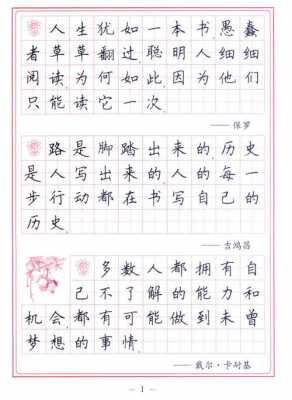 人生犹如一本书,愚蠢
者草草翻过,聪明人细细
阅读。为何如此,因为他们
只能读它一次。
—— 保罗
路是脚踏出来的,历史
是人写出来的。人的每一
步行动都在书写自己的
历史。
—— 吉鸿昌
多数人都拥有自
己不了解的能力和
机会,都有可能做到未曾
梦想的事情。
—— 戴尔·卡耐基
— 1 —